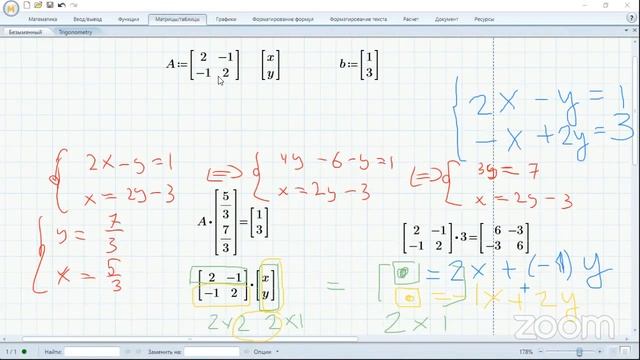 Математика Ввод/вывод Функции Матрицы/таблицы Графики Форматирование формул Форматирование текста Расчет Документ
Безымянный Trigonometry
A:=[2 −1; −1 2] [x; y] b:=[1; 3]
{2x − y = 1
−x + 2y = 3
{2x − y = 1 <=> {4y − 6 − y = 1 <=> {3y = 7
x = 2y − 3 x = 2y − 3 x = 2y − 3
{y = 7/3
x = 5/3
A·[5/3; 7/3]=[1; 3]
[2 −1; −1 2]·3=[6 −3; −3 6]
[2 −1; −1 2]·[x; y] = [ ] = 2x + (−1)y
= −1x + 2y
2x2 2x1 2x1
zoom
1 / 1 Найти: Заменить на: Опции 178%